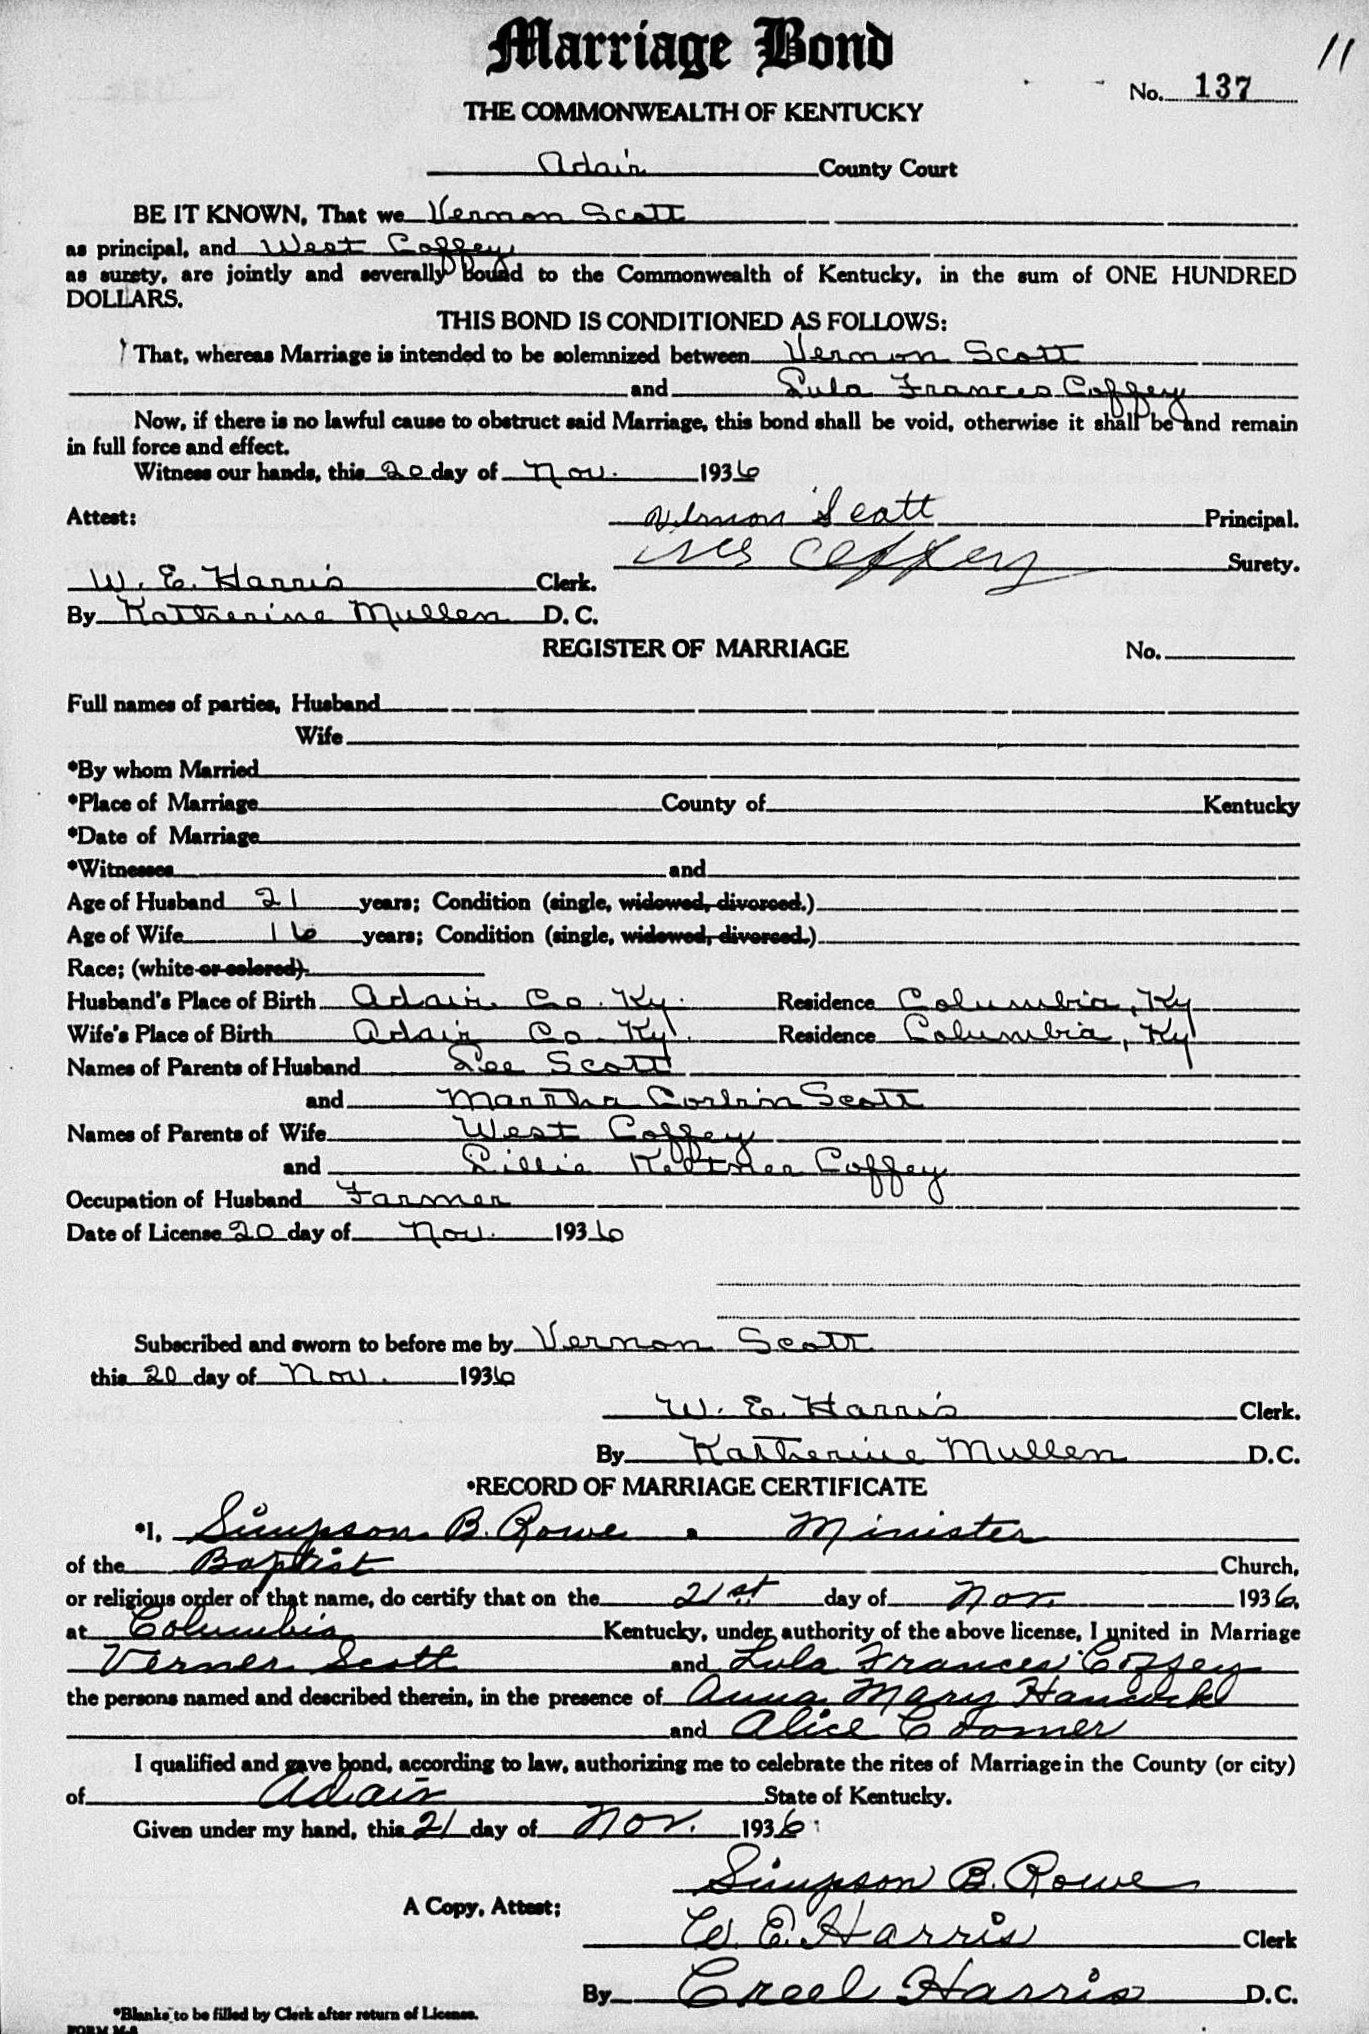 Marriage Bond
11
No. 137
THE COMMONWEALTH OF KENTUCKY
Adair County Court
BE IT KNOWN, That we Vernon Scott
as principal, and West Coffey
as surety, are jointly and severally bound to the Commonwealth of Kentucky, in the sum of ONE HUNDRED
DOLLARS.
THIS BOND IS CONDITIONED AS FOLLOWS:
That, whereas Marriage is intended to be solemnized between Vernon Scott
and Lula Frances Coffey
Now, if there is no lawful cause to obstruct said Marriage, this bond shall be void, otherwise it shall be and remain
in full force and effect.
Witness our hands, this 20 day of Nov. 1936
Attest: Vernon Scott Principal.
Coffey Surety.
W. E. Harris Clerk.
By Katherine Mullen D. C.
REGISTER OF MARRIAGE No.
Full names of parties, Husband
Wife
*By whom Married
*Place of Marriage County of Kentucky
*Date of Marriage
*Witnesses and
Age of Husband 21 years; Condition (single, widowed, divorced.)
Age of Wife 16 years; Condition (single, widowed, divorced.)
Race; (white or colored).
Husband's Place of Birth Adair Co. Ky. Residence Columbia, Ky
Wife's Place of Birth Adair Co. Ky. Residence Columbia, Ky
Names of Parents of Husband Lee Scott
and Martha Corbin Scott
Names of Parents of Wife West Coffey
and Lillie Keltner Coffey
Occupation of Husband Farmer
Date of License 20 day of Nov. 1936
Subscribed and sworn to before me by Vernon Scott
this 20 day of Nov. 1936
W. E. Harris Clerk.
By Katherine Mullen D.C.
*RECORD OF MARRIAGE CERTIFICATE
*I, Simpson B. Rowe a Minister
of the Baptist Church,
or religious order of that name, do certify that on the 21st day of Nov. 1936,
at Columbia Kentucky, under authority of the above license, I united in Marriage
Verner Scott and Lula Frances Coffey
the persons named and described therein, in the presence of Anna Mary Hancock
and Alice Coomer
I qualified and gave bond, according to law, authorizing me to celebrate the rites of Marriage in the County (or city)
of Adair State of Kentucky.
Given under my hand, this 21 day of Nov. 1936
Simpson B. Rowe
A Copy, Attest:
W. E. Harris Clerk
By Creel Harris D.C.
*Blanks to be filled by Clerk after return of License.
FORM M-2